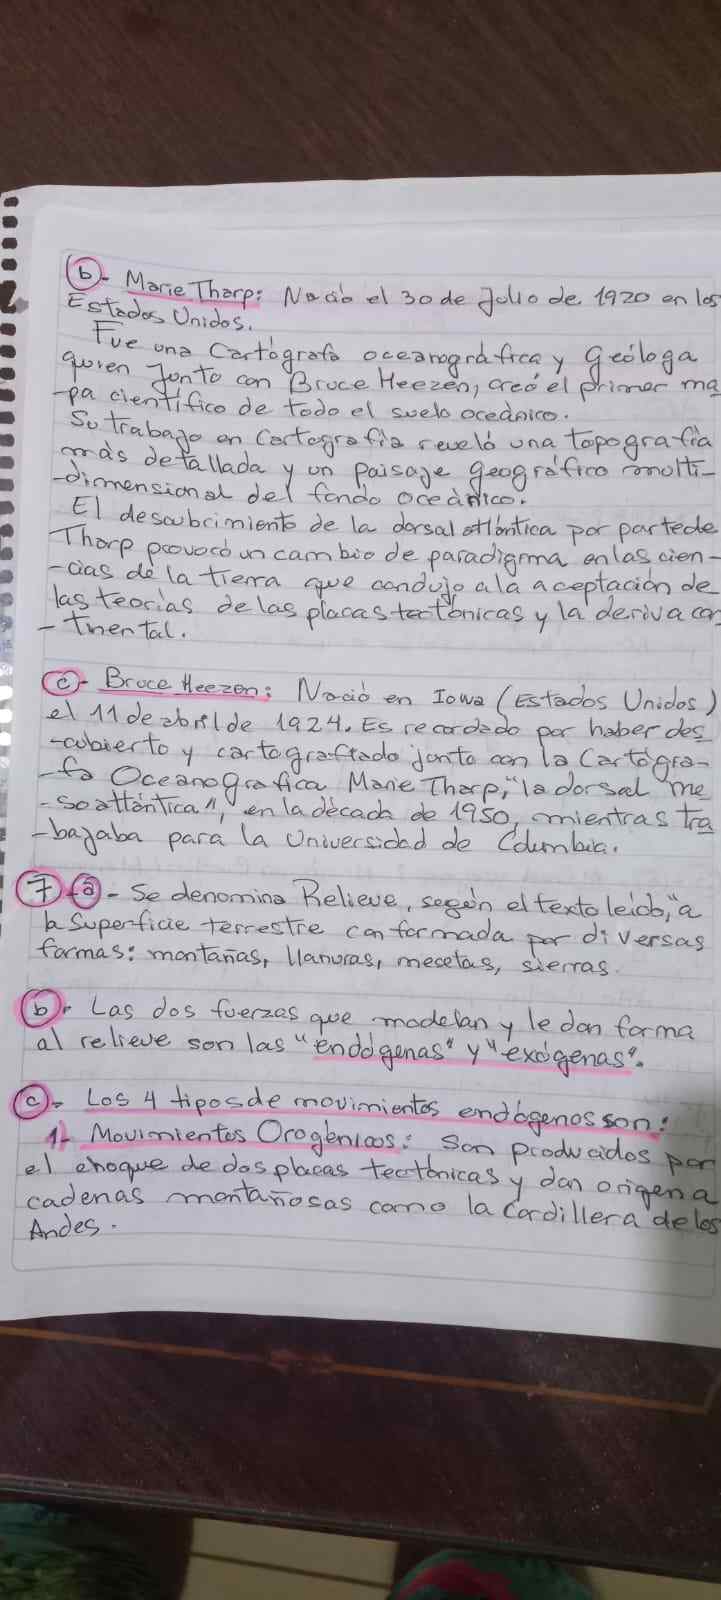 b- Marie Tharp: Nació el 30 de Julio de 1920 en los
Estados Unidos.
Fue una Cartógrafa oceanográfica y Geóloga
quien junto con Bruce Heezen, creó el primer ma
-pa científico de todo el suelo oceánico.
Su trabajo en Cartografía reveló una topografía
más detallada y un paisaje geográfico multi-
-dimensional del fondo oceánico.
El descubrimiento de la dorsal atlántica por parte de
Tharp provocó un cambio de paradigma en las cien-
-cias de la tierra que condujo a la aceptación de
las teorías de las placas tectónicas y la deriva con
- tinental.
c- Bruce Heezen: Nació en Iowa (Estados Unidos)
el 11 de abril de 1924. Es recordado por haber des
-cubierto y cartografiado junto con la Cartógra-
-fa Oceanografica Marie Tharp, "la dorsal me
-soatlántica", en la década de 1950, mientras tra
-bajaba para la Universidad de Columbia.
7-a- Se denomina Relieve, según el texto leído, "a
la Superficie terrestre conformada por diversas
formas: montañas, llanuras, mecetas, sierras.
b- Las dos fuerzas que modelan y le dan forma
al relieve son las "endógenas" y "exógenas".
c- Los 4 tipos de movimientos endógenos son:
1- Movimientos Orogénicos: Son producidos por
el choque de dos placas tectónicas y dan origen a
cadenas montañosas como la Cordillera de los
Andes.